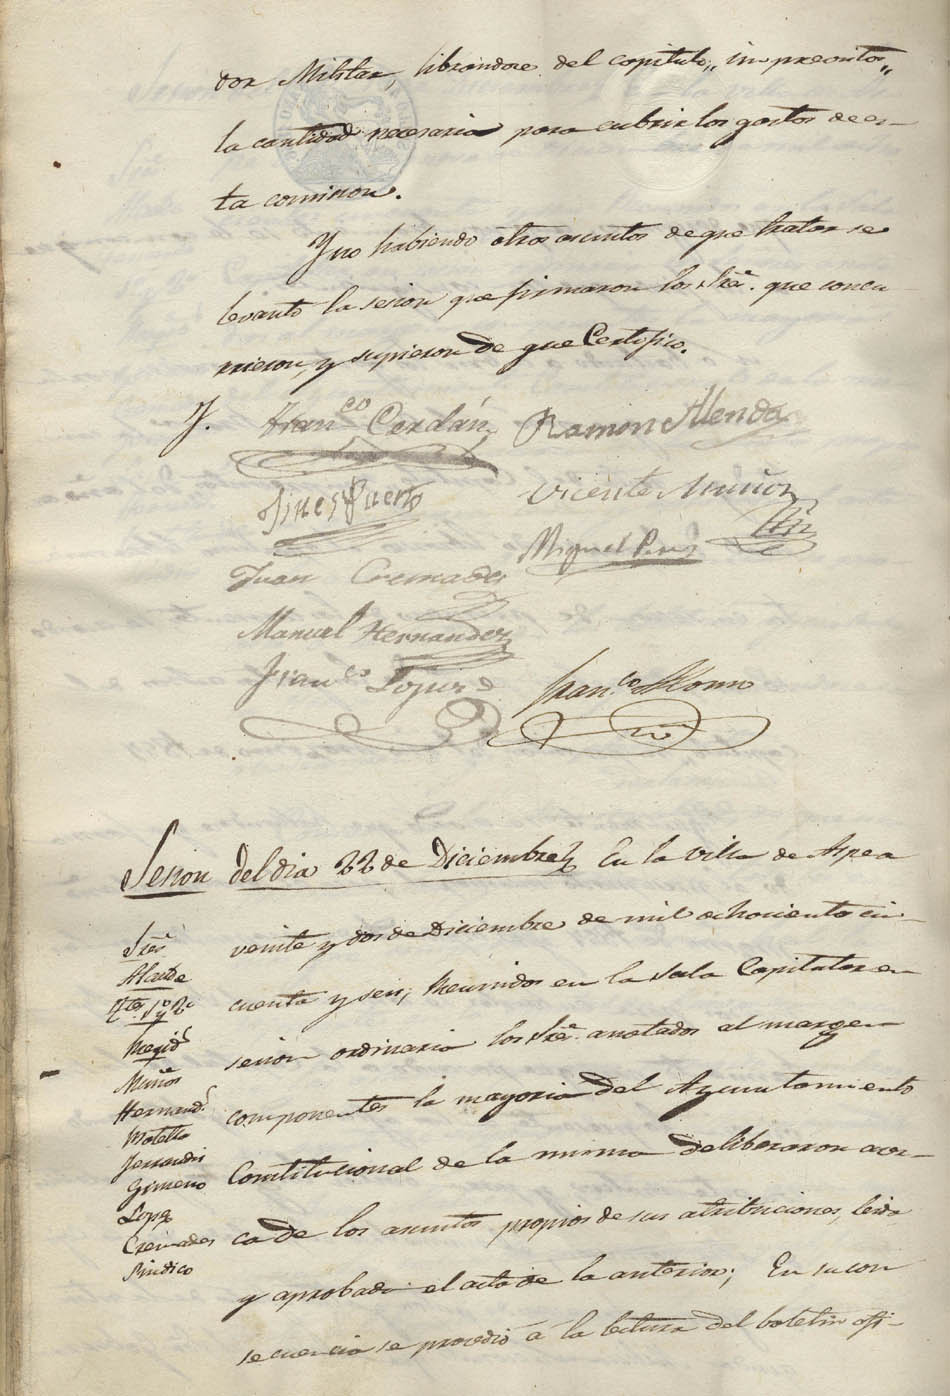 dor Militar, librandose del capitulo "imprevistos"
la cantidad necesaria para cubrir los gastos de es-
ta comision.
Y no habiendo otros asuntos de que tratar se
levantó la sesion que firmaron los Sres. que concu
rrieron, y supieron de que Certifico.
Franco Cerdán Ramon Allenda
Gines Puerto Vicente Muñoz
Miguel Perez
Juan Cremades
Manuel Hernandez
Franco
Franco
Sesion del dia 22 de Diciembre En la villa de Aspea
veinte y dos de Diciembre de mil ochociento cin-
cuenta y seis; Reunidos en la Sala Capitular en
sesion ordinaria los Sres. anotados al margen
componentes la mayoria del Ayuntamiento
Constitucional de la misma deliberaron acer-
ca de los asuntos propios de sus atribuciones, leida
y aprobada el acta de la anterior; En su con
secuencia se procedió a la lectura del boletin ofi-
Sres
Alcalde
Ttes. 1o y 2o
Regids
Muñoz
Hernandz
Motella
Ferrandis
Gimeno
Lopez
Cremades
Sindico